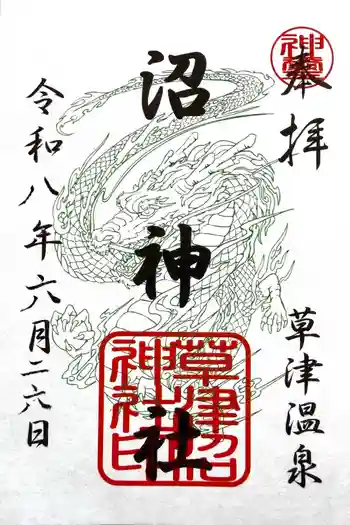 奉拝
草津温泉
沼神社
令和八年六月二六日
草津沼
神社印